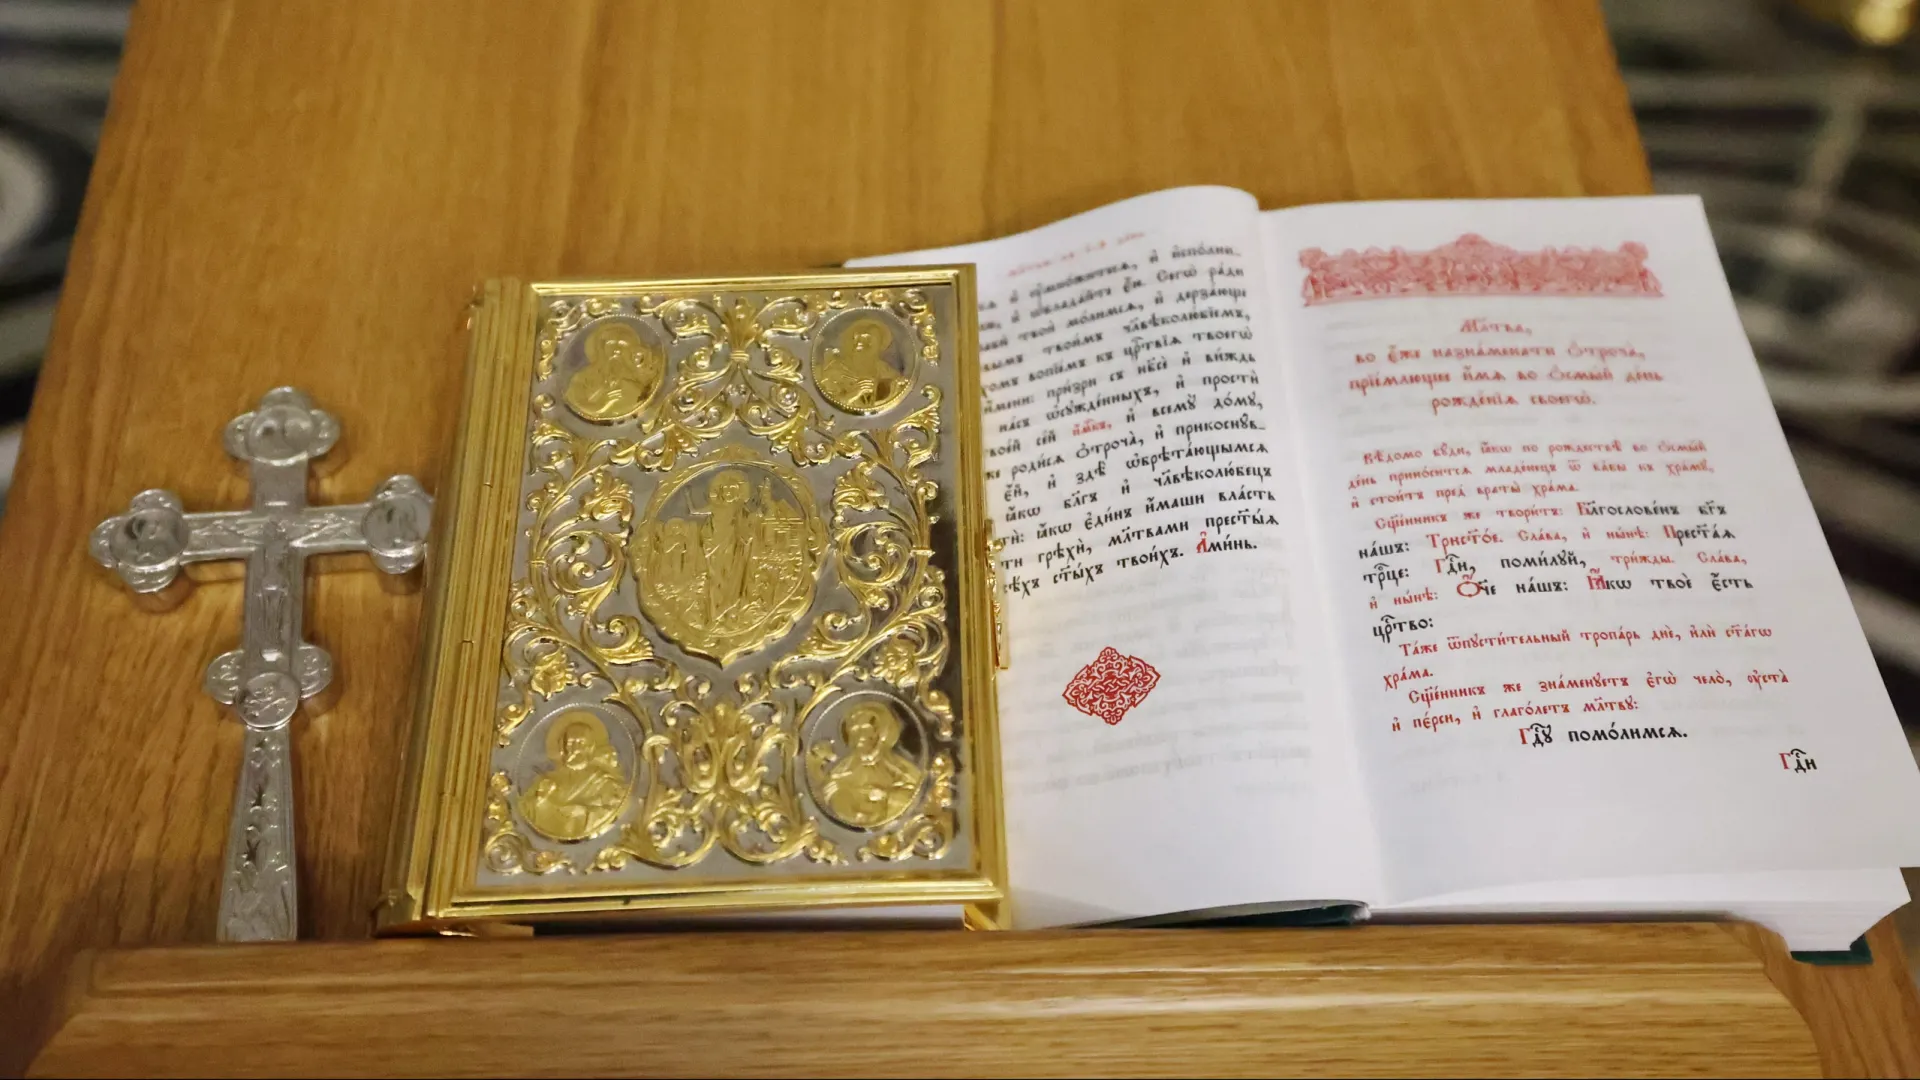 и҆ оу҆мно́житисѧ, и҆ и҆спо́лни-
и҆ ѡ҆блада́ти є҆́ю. Сегѡ̀ ра́ди
твоѝ мо́лимсѧ, и҆ дерза́юще
твои́мъ чл҃вѣколю́бїемъ,
вопїе́мъ къ цр҃твїѧ твоегѡ̀
и҆́мени: при́зри съ нб҃сѐ и҆ ви́ждь
на́съ ѡ҆сꙋжде́нныхъ, и҆ простѝ
се́й и҆́м҃къ, и҆ всемꙋ̀ до́мꙋ,
роди́сѧ ѻ҆троча̀, и҆ прикоснꙋ́в-
є҆́й, и҆ здѣ̀ ѡ҆брѣта́ющымсѧ
ꙗ҆́кѡ бл҃гъ и҆ чл҃вѣколю́бецъ
ꙗ҆́кѡ є҆ди́нъ и҆́маши вла́сть
грѣхѝ, мл҃твами прест҃ы́ѧ
ст҃ы́хъ твои́хъ. А҆ми́нь.
Мл҃тва,
во є҆́же назна́менати ѻ҆троча̀,
прїе́млющее и҆́мѧ во ѻ҆смы́й де́нь
рожде́нїѧ своегѡ̀.
Вѣ́домо бꙋ́ди, ꙗ҆́кѡ по рождествѣ̀ во ѻ҆смы́й
де́нь прино́ситсѧ младе́нецъ ѿ ба́бы къ хра́мꙋ,
и҆ стои́тъ пред̾ враты̀ хра́ма.
Сщ҃е́нникъ же твори́тъ: Бл҃гослове́нъ бг҃ъ
на́шъ: Трист҃о́е. Сла́ва, и҆ ны́нѣ: Прест҃а́ѧ
трⷪ҇це: Гдⷭ҇и, поми́лꙋй, три́жды. Сла́ва,
и҆ ны́нѣ: Ѻ҆́ч҃е на́шъ: Ꙗ҆́кѡ твоѐ є҆́сть
црⷭ҇тво:
Та́же ѿпꙋсти́тельный тропа́рь днѐ, и҆лѝ ст҃а́гѡ
хра́ма.
Сщ҃е́нникъ же зна́менꙋетъ є҆гѡ̀ чело̀, оу҆ста̀
и҆ пе́рси, и҆ глаго́летъ мл҃твꙋ:
Гдⷭ҇ꙋ помо́лимсѧ.
Гдⷭ҇и